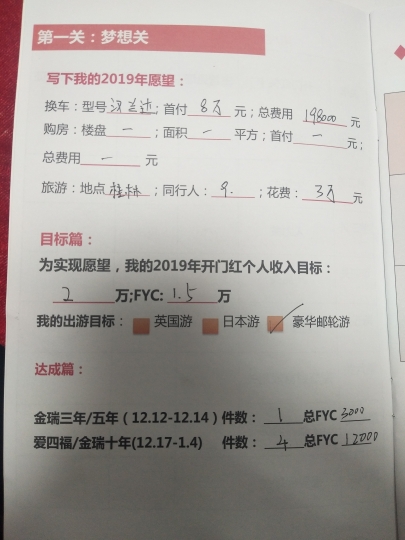 第一关：梦想关
写下我的2019年愿望：
换车：型号汉兰达；首付 8万 元；总费用 198000 元
购房：楼盘 一 ；面积 一 平方；首付 一 元；
总费用 一 元
旅游：地点 桂林 ；同行人： 9. ；花费： 3万 元
目标篇：
为实现愿望，我的2019年开门红个人收入目标：
2 万;FYC: 1.5 万
我的出游目标： 英国游 日本游 豪华邮轮游
达成篇：
金瑞三年/五年（12.12-12.14）件数： 1 总FYC 3000
爱四福/金瑞十年(12.17-1.4) 件数： 4 总FYC 12000